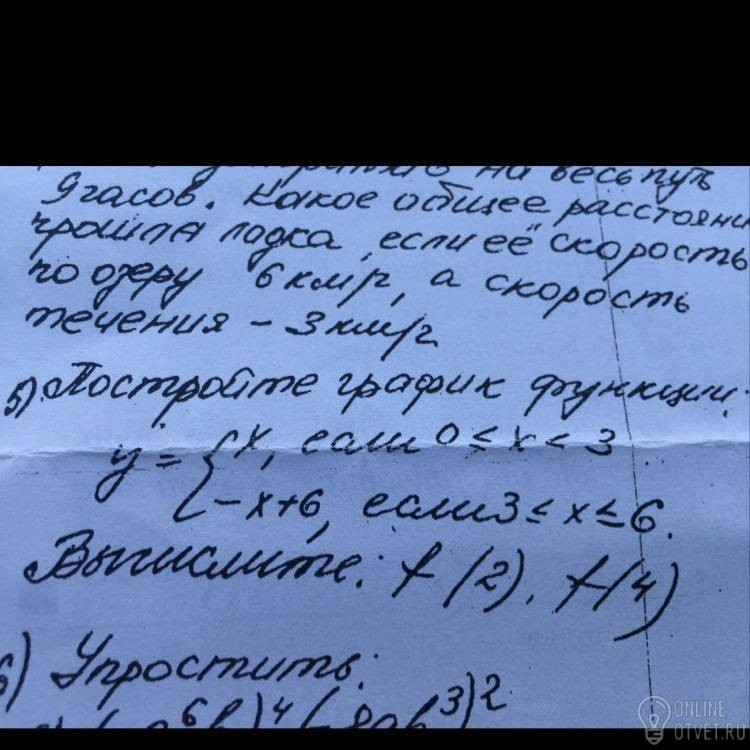 на весь путь
9 часов. Какое общее расстояни
прошла лодка, если её скорость
по озеру 6 км/ч, а скорость
течения - 3 км/ч
5) Постройте график функции:
y = { x, если 0 ≤ x < 3
-x+6, если 3 ≤ x ≤ 6.
Вычислите: f(2), f(4)
6) Упростить:
6b)⁴(-8ab³)²
ONLINE
OTVET.RU